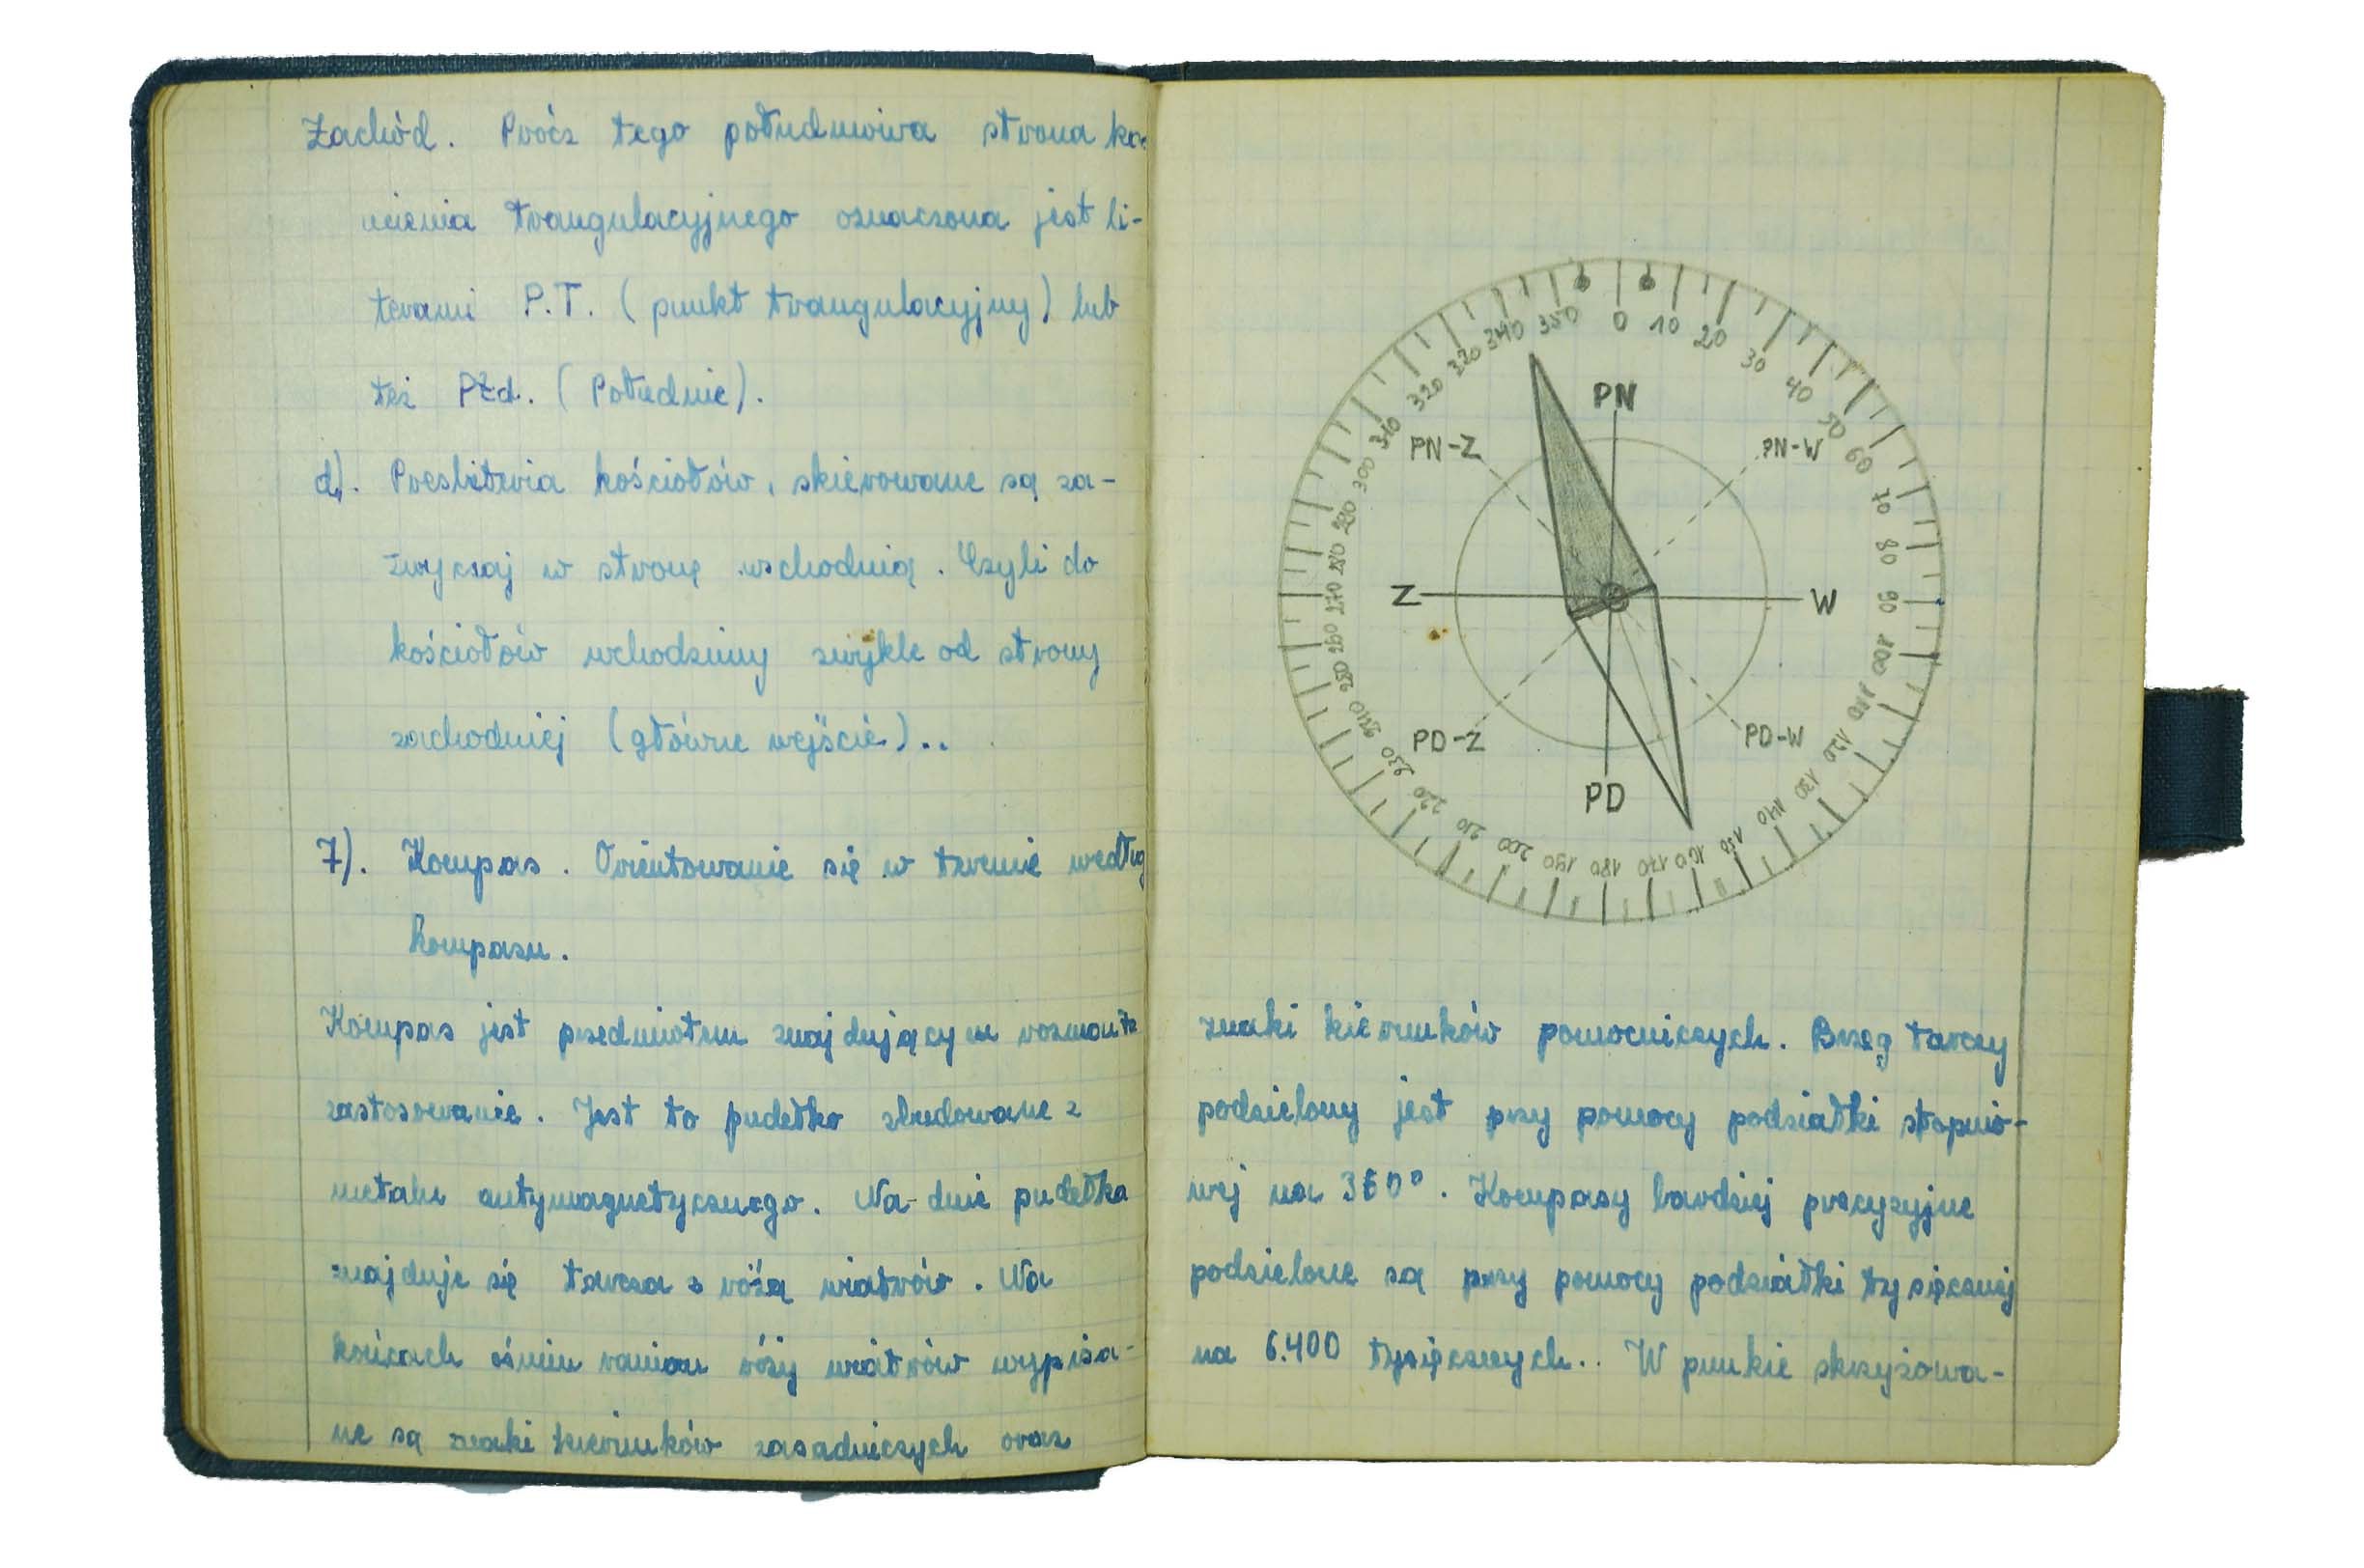 Zachód. Prócz tego południowa strona ka-
mienia trangulacyjnego oznaczona jest li-
terami P.T. (punkt trangulacyjny) lub
też Płd. (Południe).
d). Presbiteria kościołów, skierowane są za-
zwyczaj w stronę wschodnią. Czyli do
kościołów wchodzimy zwykle od strony
zachodniej (główne wejście)..
7). Kompas. Orientowanie się w terenie według
kompasu.
Kompas jest przedmiotem znajdującym rozmaite
zastosowanie. Jest to pudełko zbudowane z
metalu antymagnetycznego. Na dnie pudełka
znajduje się tarcza z różą wiatrów. Na
końcach ośmiu ramion róży wiatrów wypisa-
ne są znaki kierunków zasadniczych oraz
0 10 20 30 40 50 60 70 80 90 100 110 120 130 140 150 160 170 180 190 200 210 220 230 240 250 260 270 280 290 300 310 320 330 340 350
PN
PN-Z PN-W
Z W
PD-Z PD-W
PD
znaki kierunków pomocniczych. Brzeg tarczy
podzielony jest przy pomocy podziałki stopnio-
wej na 360°. Kompasy bardziej precyzyjne
podzielone są przy pomocy podziałki tysięcznej
na 6.400 tysięcznych.. W punkie skrzyżowa-